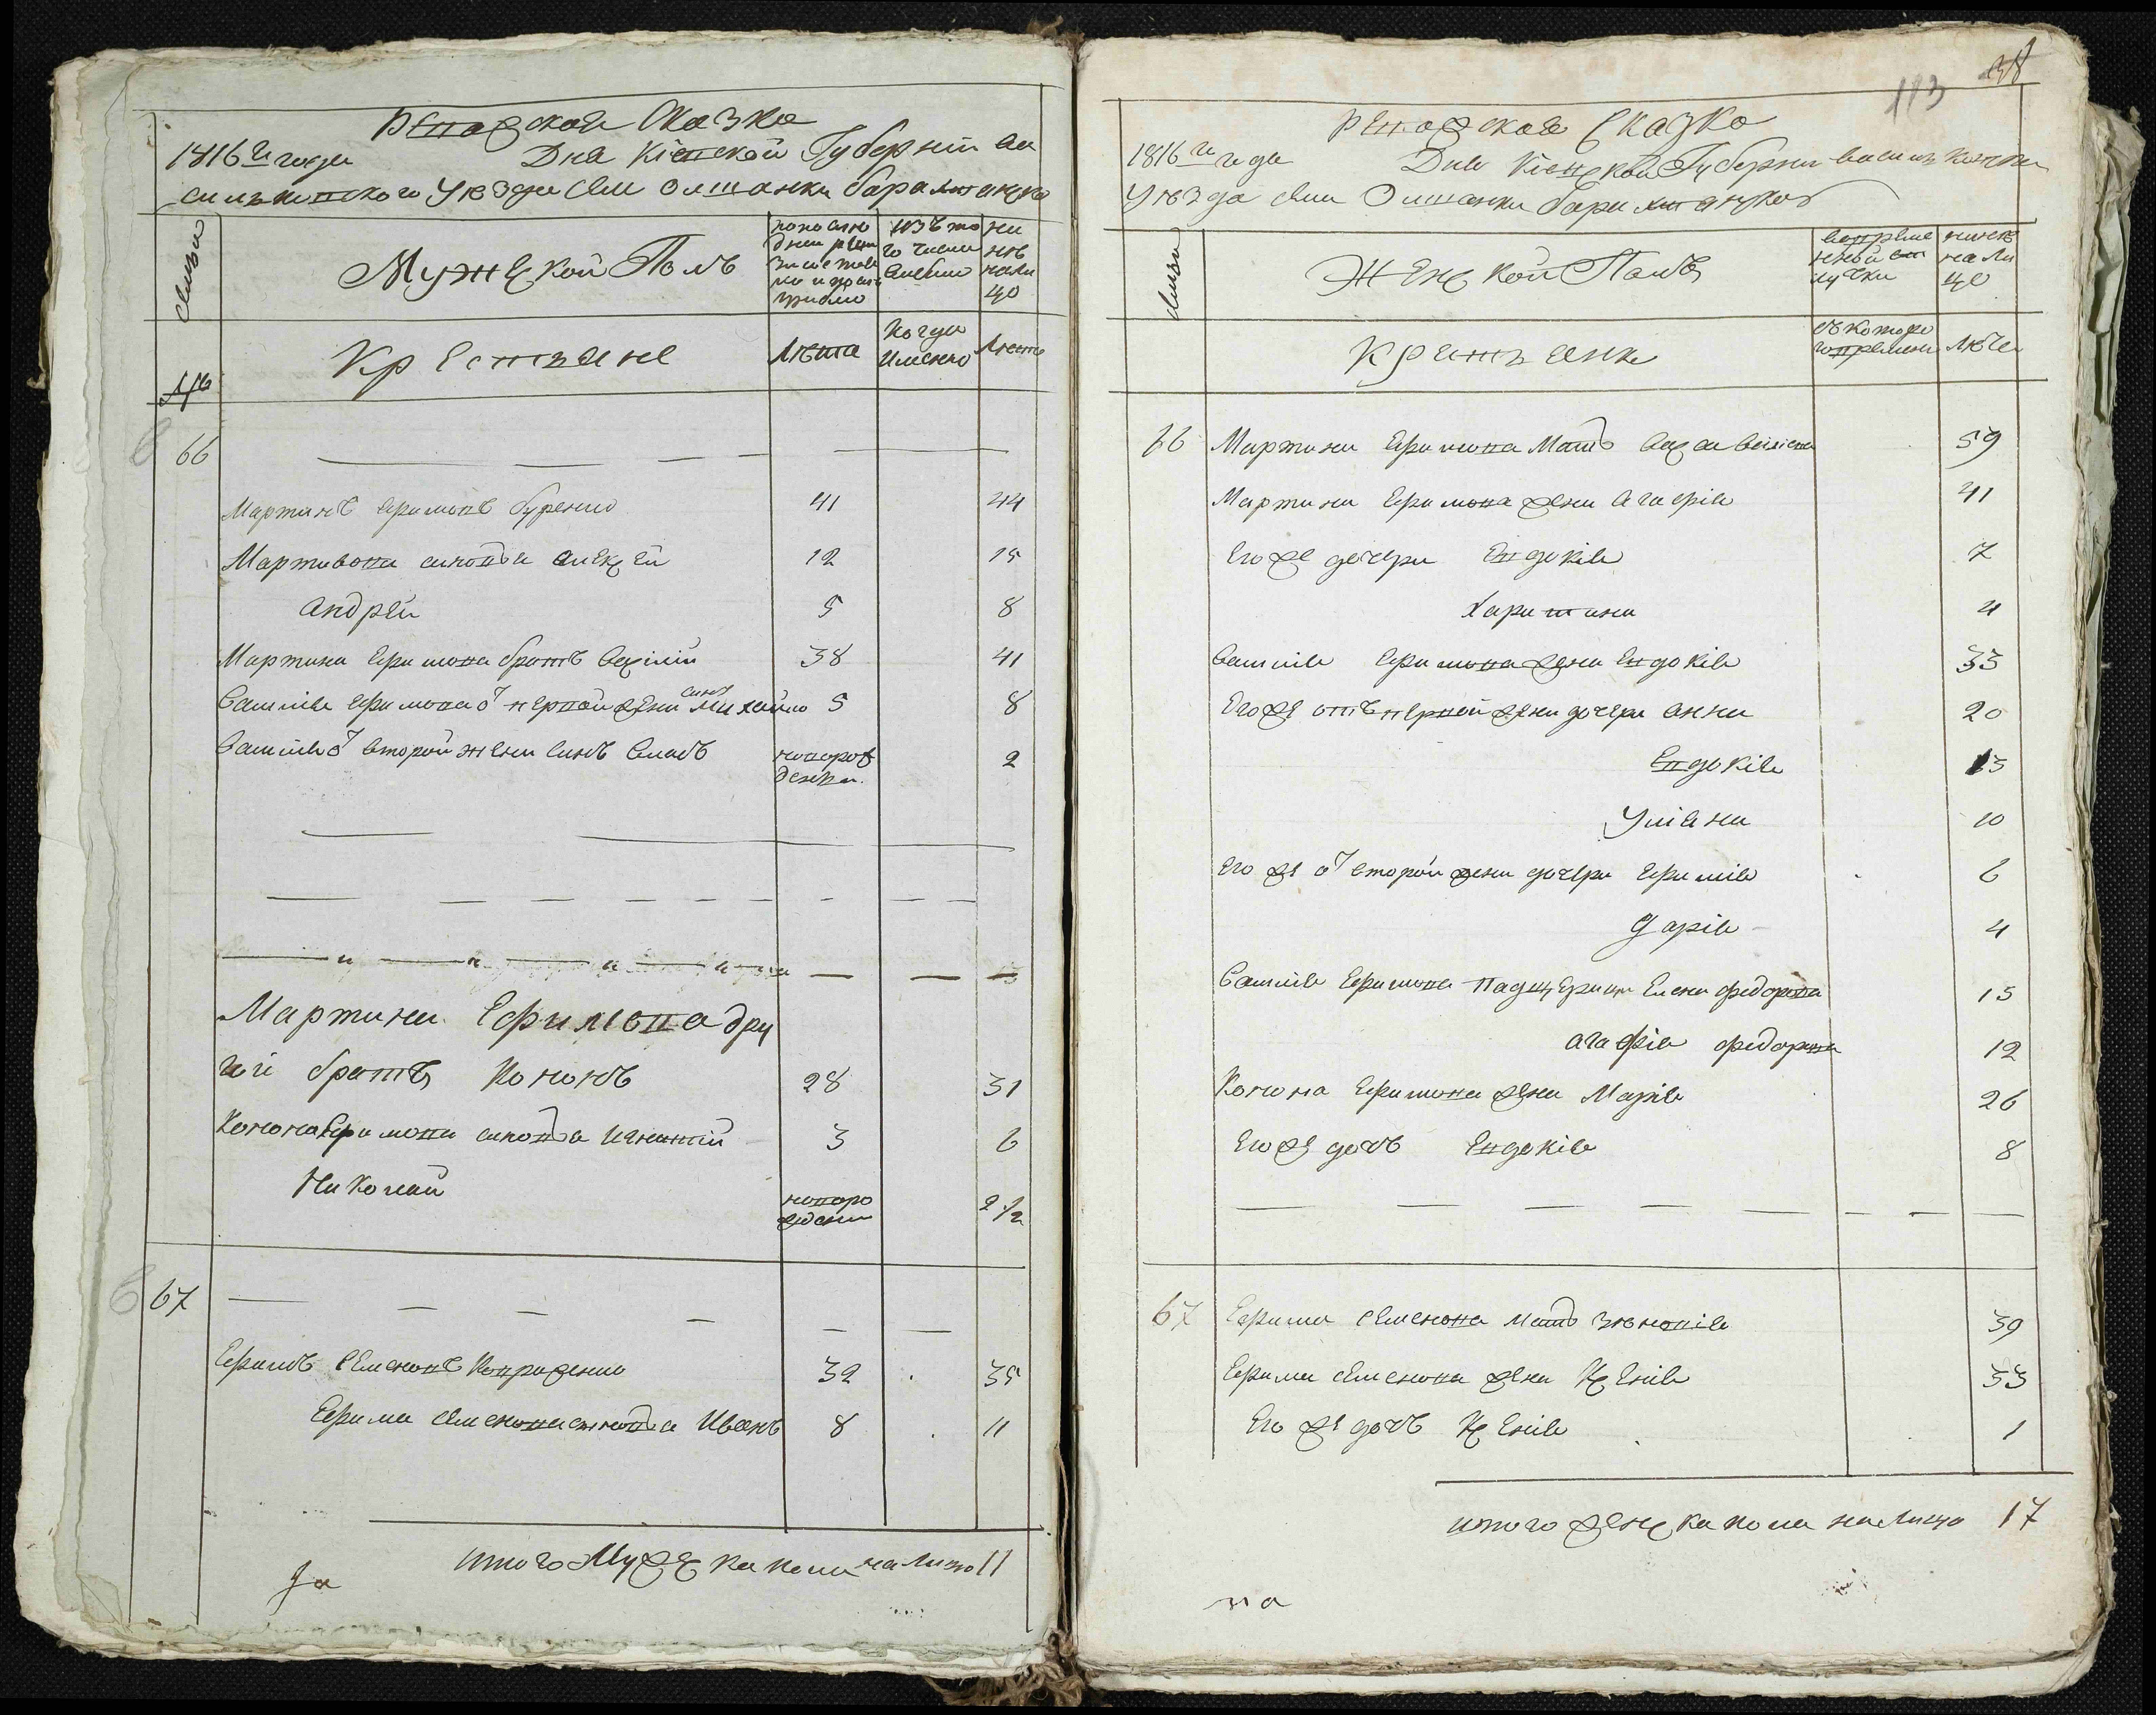 Ревизская Сказка
1816го года Дня Кіевской Губерніи Ва
сильковского Уезда села Ольшанки
семьи
Мужеской Полъ
по последней ревизіи состояло и после прибыло
изъ того числа выбыло
ныне налицо
№
Крестьяне
Лета
Когда именно
Лета
66
Мартинъ Ефимовъ Буренко 41 44
Мартинова синовья Алексей 12 15
Андрей 5 8
Мартина Ефимова братъ Василій 38 41
Василія Ефимова от первой жени синъ Михайло 5 8
Василія от второй жени синъ Власъ новорожденни 2
Мартина Ефимова дру
гій братъ Кононъ 28 31
Конона Ефимова синовья Игнатій 3 6
Николай новорожденни 2 1/2
67
Ефимъ Семеновъ Кондраденко 32 35
Ефима Семенова синовья Иванъ 8 11
Итого Мужеска пола налицо 11
да
38
113
Ревизская Сказка
1816го года Дня Кіевской Губерніи Васильковского
Уезда села Ольшанки
семьи
Женской Полъ
во временной отлучке
ныне налицо
Крестьяне
съ которого времени
Лета
66 Мартина Ефимова Мать Васса Василіева 59
Мартина Ефимова жена Агафія 41
Его же дочери Евдокія 7
Харитина 4
Василія Ефимова жена Евдокія 33
Его же отъ первой жени дочери Анна 20
Евдокія 13
Уліяна 10
Его же от второй жени дочери Ефимія 6
Дарія 4
Василія Ефимова Падщерици Елена Федорова 15
Агафія Федорова 12
Конона Ефимова жена Марія 26
Его же дочь Евдокія 8
67 Ефима Семенова мать Зеновія 59
Ефима Семенова жена Ксенія 33
Его же дочь Ксенія 1
итого женска пола налицо 17
на